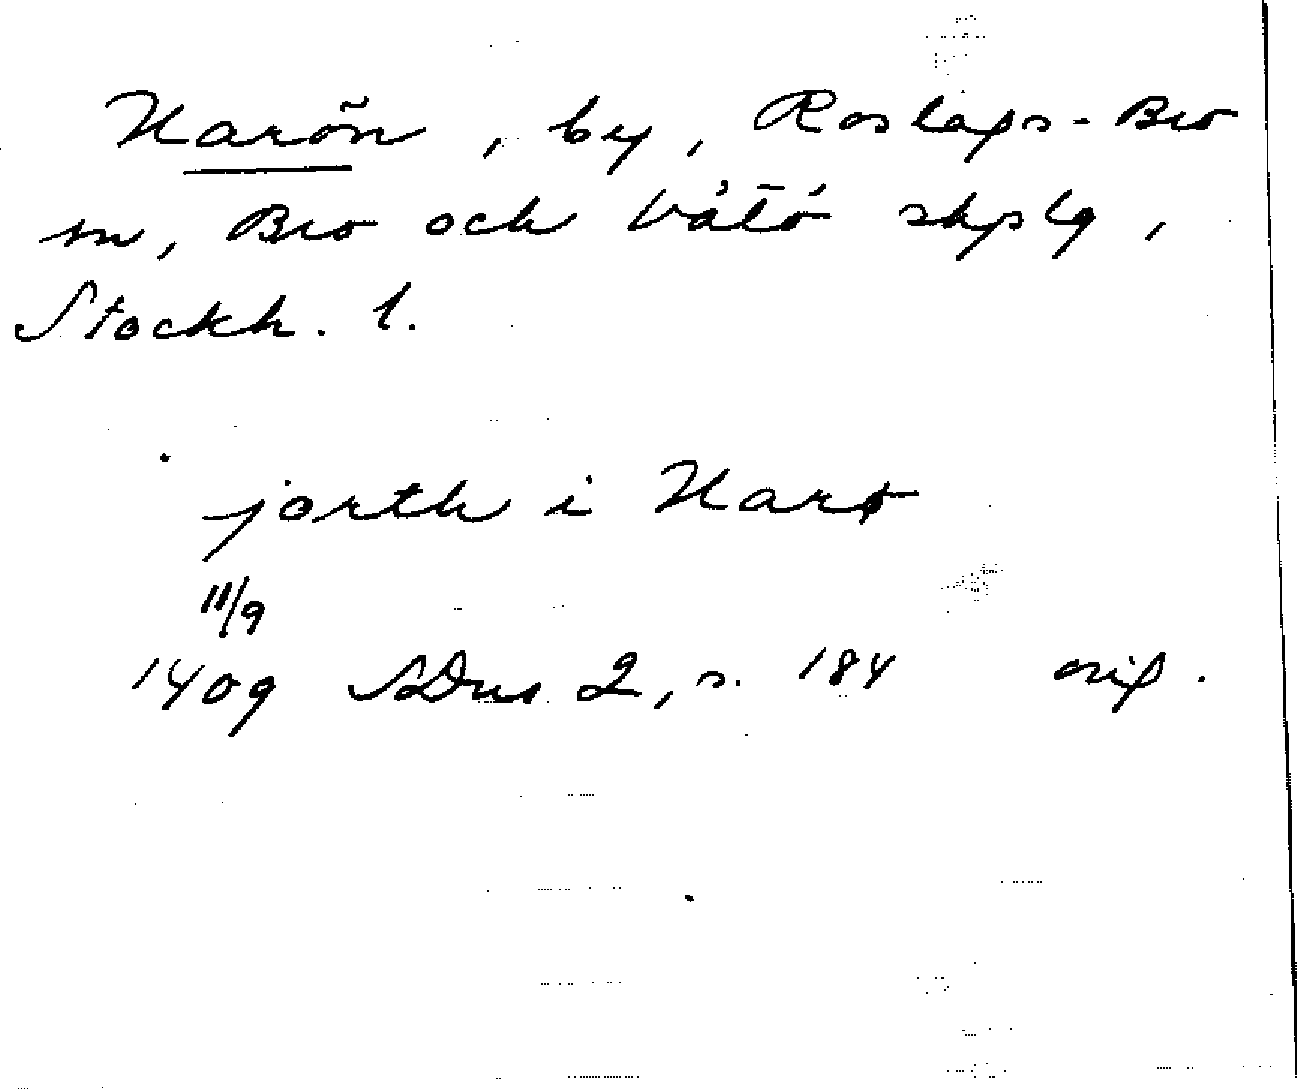 Harön, by, Roslags-Bro
sn, Bro och Vätö skpslg,
Stockh. l.
jorth i Harø
11/9
1409 SDns 2, s. 184 orig.